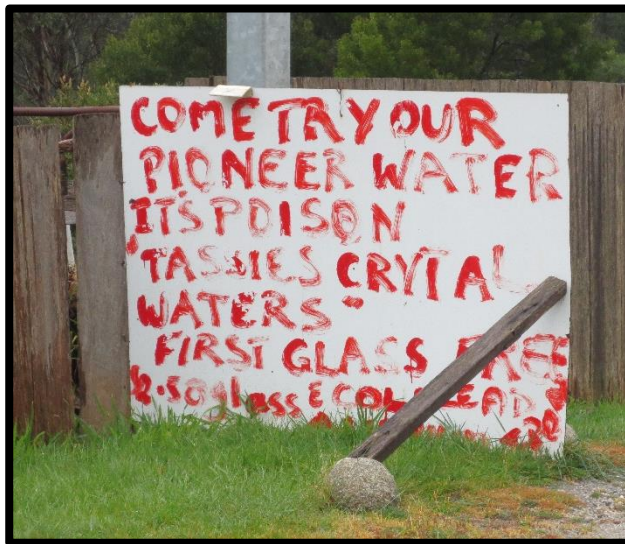 COME TRY OUR
PIONEER WATER
IT'S POISON
TASSIES CRYTAL
WATERS
FIRST GLASS FREE
$2.50 glass ECOLI LEAD